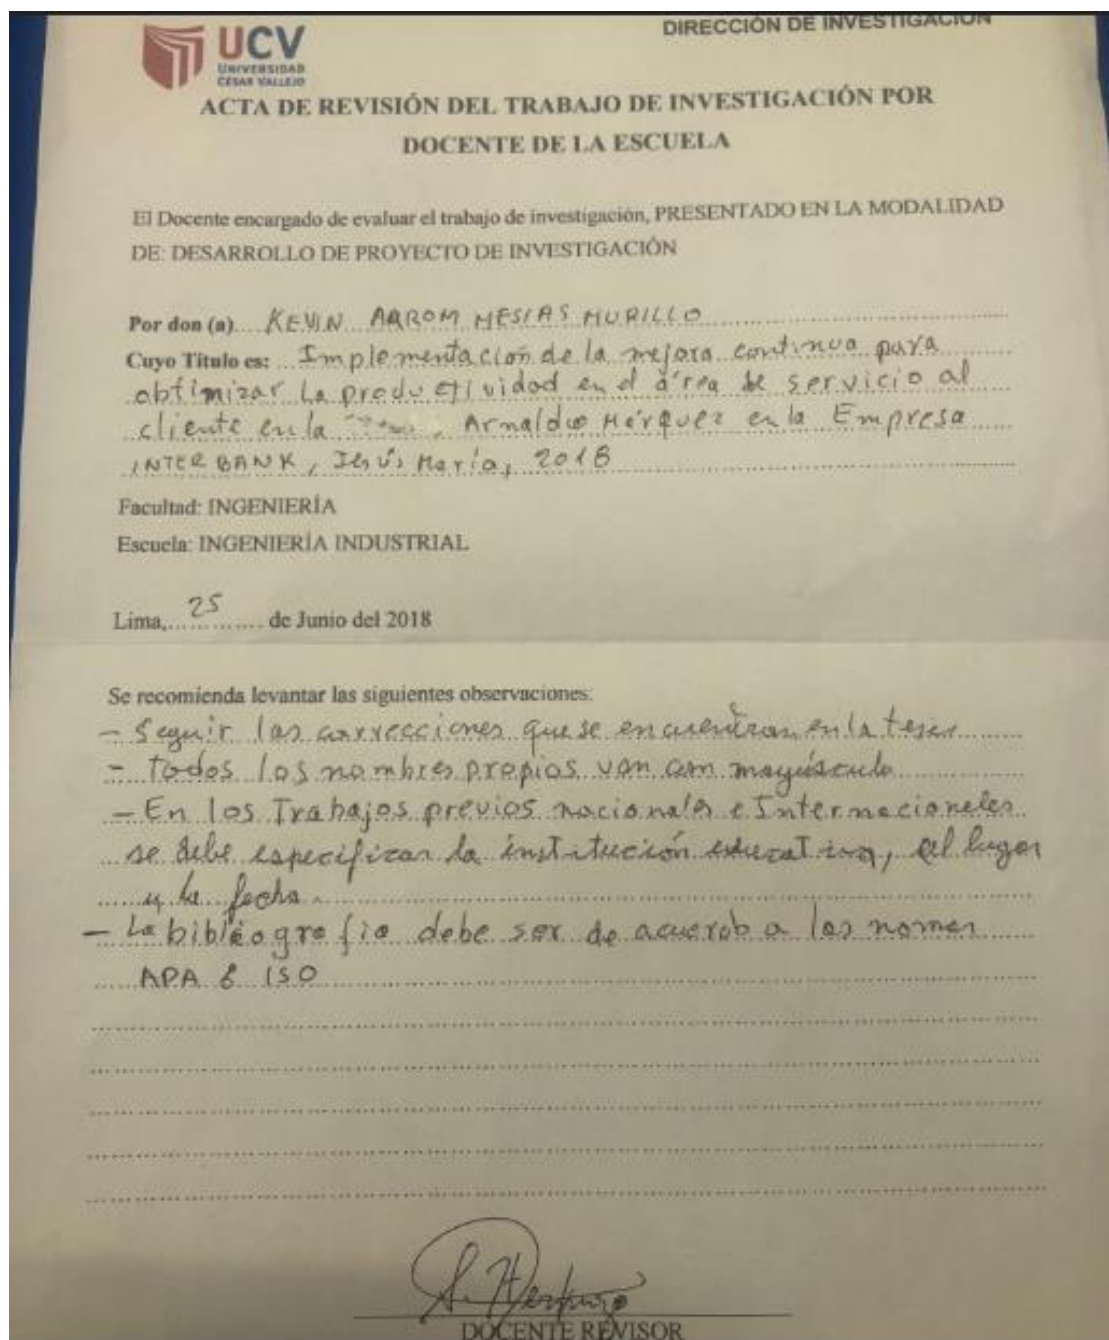 DIRECCIÓN DE INVESTIGACIÓN
UCV
UNIVERSIDAD
CÉSAR VALLEJO
ACTA DE REVISIÓN DEL TRABAJO DE INVESTIGACIÓN POR
DOCENTE DE LA ESCUELA
El Docente encargado de evaluar el trabajo de investigación, PRESENTADO EN LA MODALIDAD
DE: DESARROLLO DE PROYECTO DE INVESTIGACIÓN
Por don (a) KEVIN AAROM MESIAS MURILLO
Cuyo Título es: Implementación de la mejora continua para
obtimizar la productividad en el área de servicio al
cliente en la Arnaldo Márquez en la Empresa
INTERBANK, Jesús María, 2018
Facultad: INGENIERÍA
Escuela: INGENIERÍA INDUSTRIAL
Lima, 25 de Junio del 2018
Se recomienda levantar las siguientes observaciones:
- Seguir las correcciones que se encuentran en la tesis
- Todos los nombres propios van con mayúscula
- En los Trabajos previos nacionales e Internacionales
se debe especificar la institución educativa, el lugar
y la fecha
- La bibliografia debe ser de acuerdo a las normas
APA é ISO
DOCENTE REVISOR